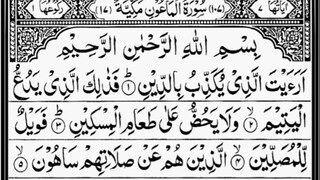 اٰيَاتُهَا ٧ (١٠٧) سُوْرَةُ الْمَاعُوْنِ مَكِّيَّةٌ (١٧) رُكُوْعُهَا ١
بِسْمِ اللّٰهِ الرَّحْمٰنِ الرَّحِيْمِ
اَرَءَيْتَ الَّذِيْ يُكَذِّبُ بِالدِّيْنِ ① فَذٰلِكَ الَّذِيْ يَدُعُّ
الْيَتِيْمَ ② وَلَا يَحُضُّ عَلٰى طَعَامِ الْمِسْكِيْنِ ③ فَوَيْلٌ
لِّلْمُصَلِّيْنَ ④ الَّذِيْنَ هُمْ عَنْ صَلَاتِهِمْ سَاهُوْنَ ⑤